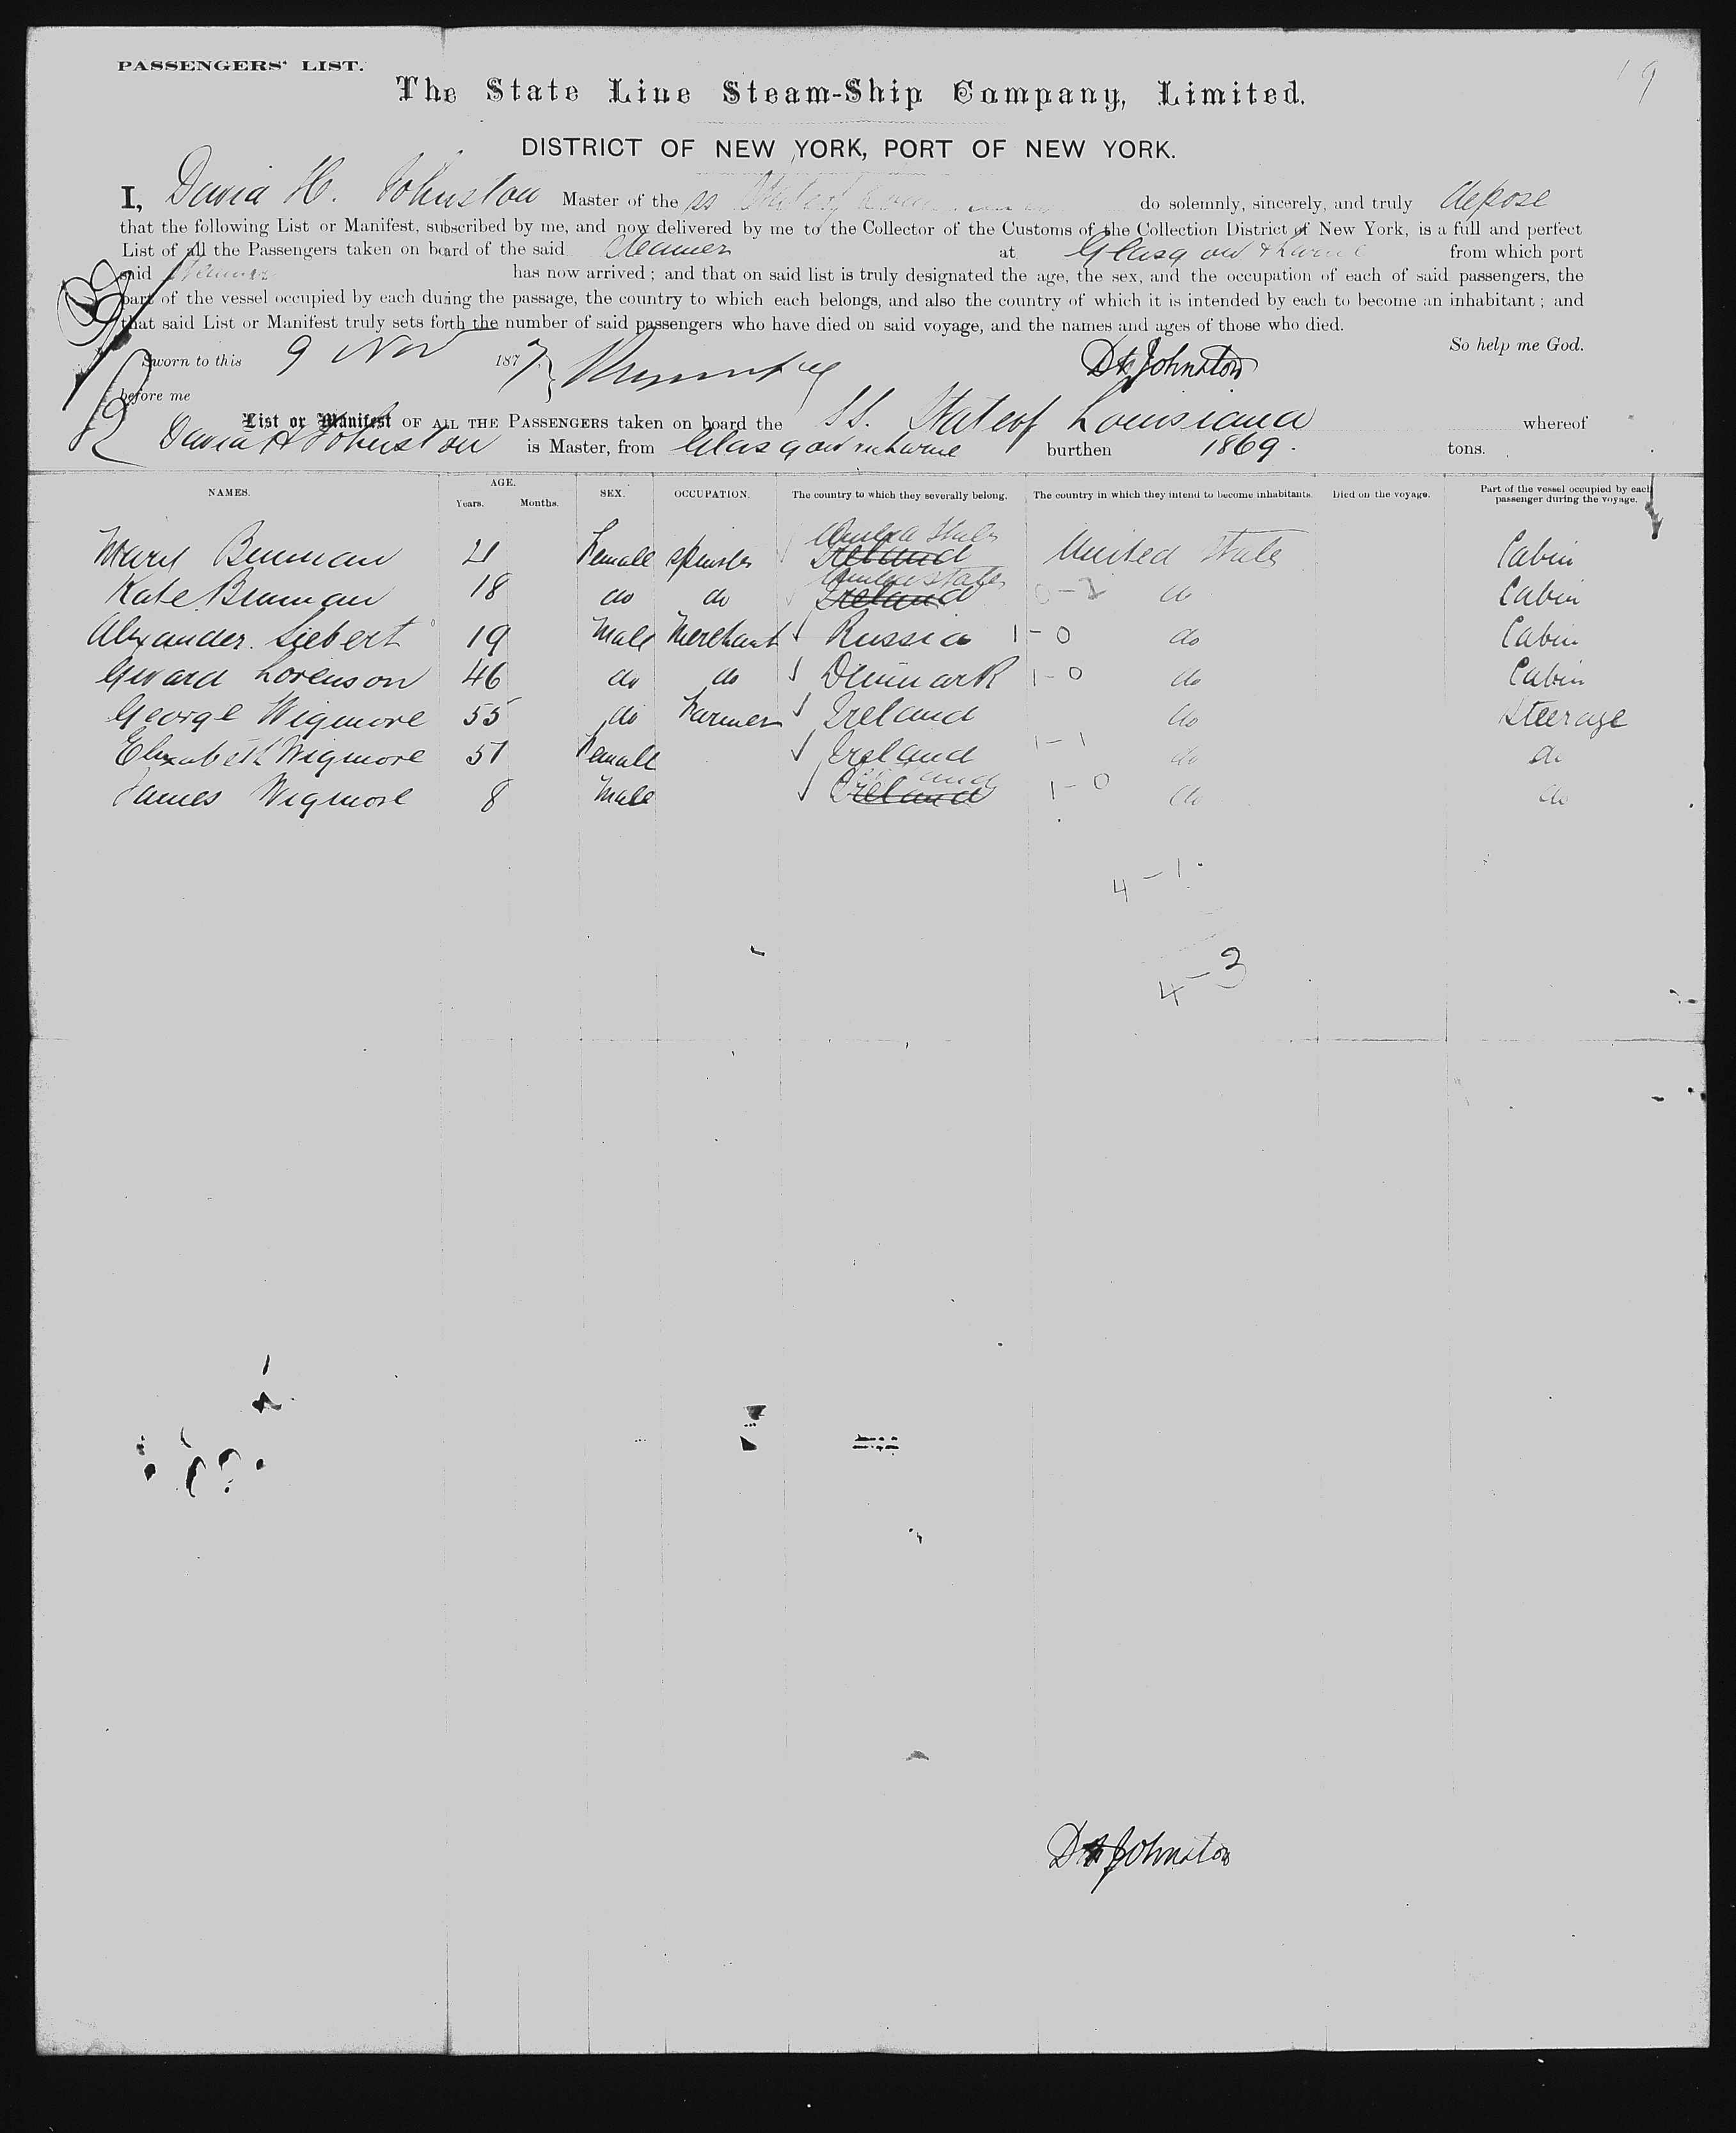 19
PASSENGERS' LIST.
The State Line Steam-Ship Company, Limited.
DISTRICT OF NEW YORK, PORT OF NEW YORK.
I, David H. Johnston Master of the ss State of do solemnly, sincerely, and truly depose
that the following List or Manifest, subscribed by me, and now delivered by me to the Collector of the Customs of the Collection District of New York, is a full and perfect
List of all the Passengers taken on board of the said Steamer at Glasgow & Larne from which port
said Steamer has now arrived; and that on said list is truly designated the age, the sex, and the occupation of each of said passengers, the
part of the vessel occupied by each during the passage, the country to which each belongs, and also the country of which it is intended by each to become an inhabitant; and
that said List or Manifest truly sets forth the number of said passengers who have died on said voyage, and the names and ages of those who died.
So help me God.
Sworn to this 9 Nov 1877 DH Johnston
before me
List or Manifest OF ALL THE PASSENGERS taken on board the SS. State of Louisiana whereof
David H Johnston is Master, from Glasgow burthen 1869. tons.
NAMES. AGE. Years. Months. SEX. OCCUPATION. The country to which they severally belong. The country in which they intend to become inhabitants. Died on the voyage. Part of the vessel occupied by each passenger during the voyage.
United States
Mary 21 Female Spinster Ireland United States Cabin
United States
Kate 18 do do Ireland 0-2 do Cabin
Alexander Siebert 19 Male Merchant Russia 1-0 do Cabin
Lorenson 46 do do Denmark 1-0 do Cabin
George Wigmore 55 do Farmer Ireland do Steerage
Elizabeth Wigmore 51 Female Ireland 1-1 do do
James Wigmore 8 Male Ireland 1-0 do do
4-1
4-3
DH Johnston